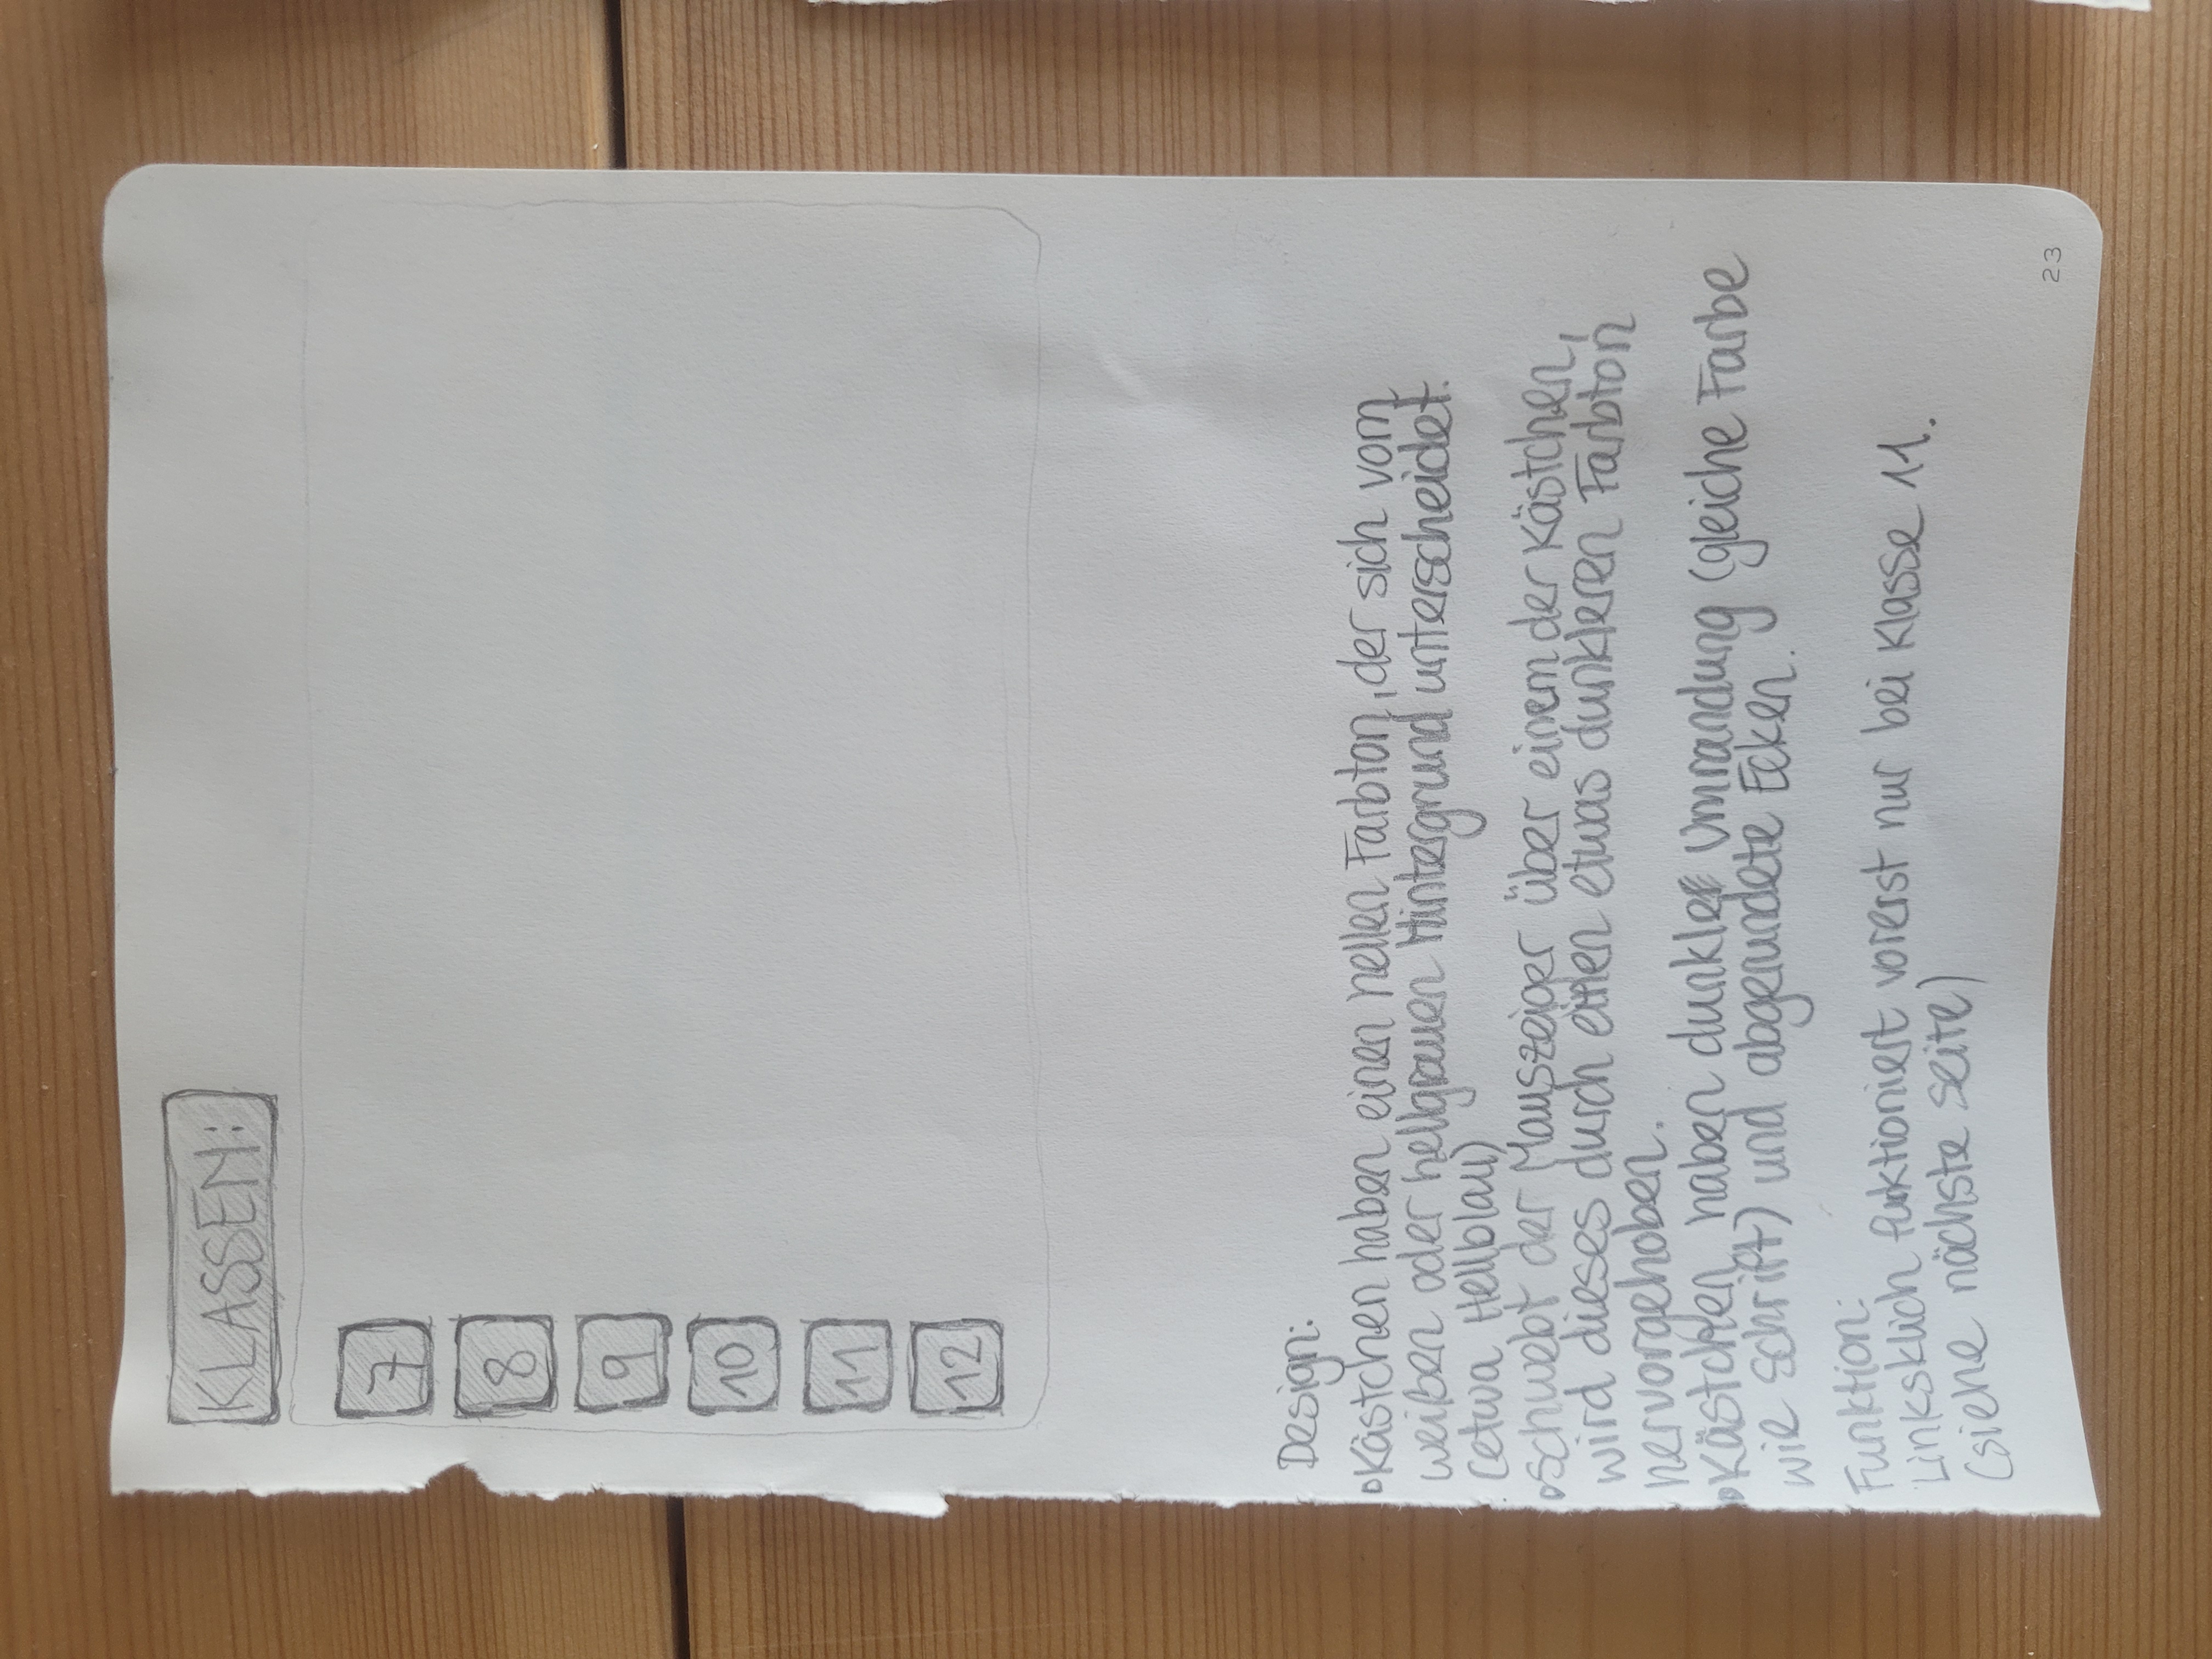 KLASSEN:
7
8
9
10
11
12
Design:
Kästchen haben einen hellen Farbton, der sich vom
weißen oder hellgrauen Hintergrund unterscheidet.
(etwa Hellblau)
Schwebt der Mauszeiger über einem der Kästchen,
wird dieses durch einen etwas dunkleren Farbton
hervorgehoben.
Kästchen haben dunkle Umrandung (gleiche Farbe
wie Schrift) und abgerundete Ecken.
Funktion:
Linksklich funktioniert vorerst nur bei Klasse 11.
(siehe nächste Seite)
23